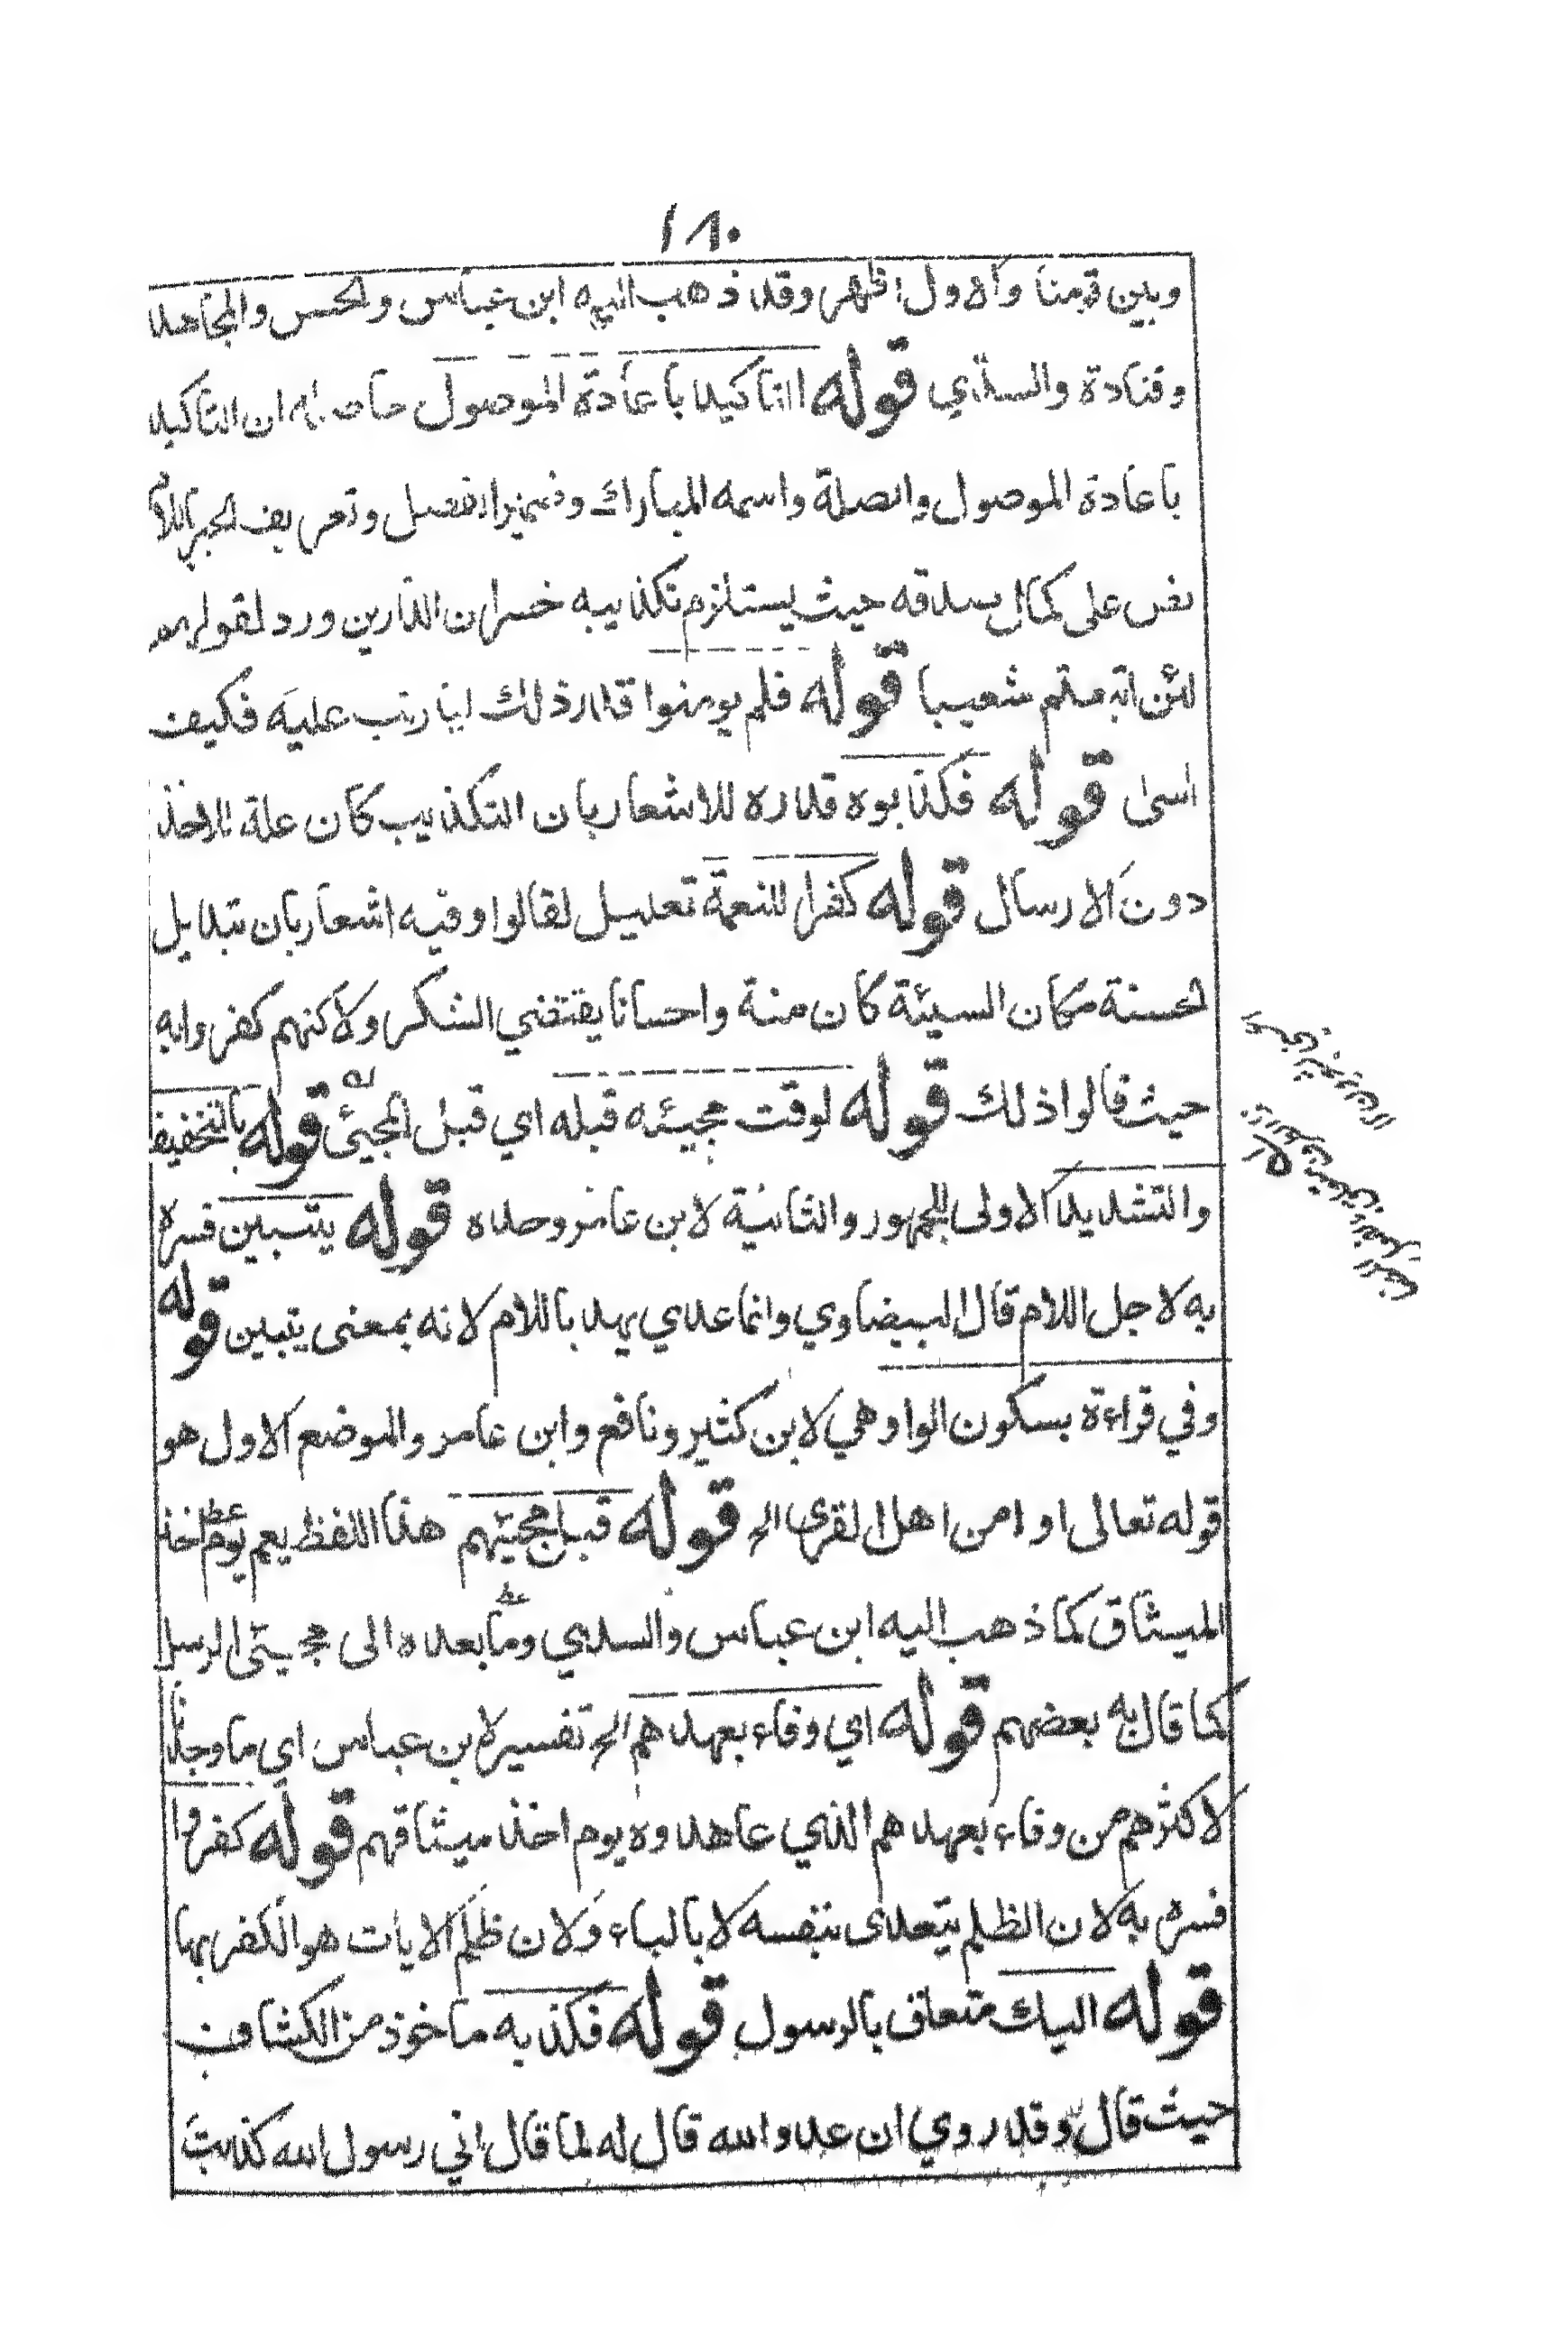 ١٨٠
وبين قومنا والاول اظهر وقد ذهب اليه ابن عباس والحسن والمجاهد
وقتادة والسدي قوله التأكيد باعادة الموصول حاصله ان التاكيد
باعادة الموصول والصلة واسمه المبارك وضمير الفصل وتعريف الخبر باللام
نص على كمال صدقه حيث يستلزم تكذيبه خسران الدارين ورد لقولهم
لئن اتبعتم شعيبا قوله فلم يومنوا قدر ذلك ليترتب عليه فكيف
اسى قوله فكذبوه قدره للاشعار بان التكذيب كان علة للاخذ
دون الارسال قوله كفرا للنعمة تعليل لقالوا وفيه اشعار بان تبديل
الحسنة مكان السيئة كان منة واحسانا يقتضي الشكر ولاكنهم كفروا به
حيث قالوا ذلك قوله لوقت مجيئه قبله اي قبل المجيئ له قوله بالتخفيف
والتشديد الاولى للجمهور والثانية لابن عامر وحده قوله يتبين فسره
به لاجل اللام قال البيضاوي وانما عدي يهد باللام لانه بمعنى يتبين قوله
وفي قراءة بسكون الواو هي لابن كثير ونافع وابن عامر والموضع الاول هو
قوله تعالى او امن اهل القرى الخ قوله قبل مجيئهم هذا اللفظ يعم يوم اخذ
الميثاق كما ذهب اليه ابن عباس والسدي وما بعده الى مجيئ الرسل
كما قال به بعضهم قوله اي وفاء بعهدهم الخ تفسير لابن عباس اي ما وجدنا
لاكثرهم من وفاء بعهدهم الذي عاهدوه يوم اخذ ميثاقهم قوله كفروا
فسره به لان الظلم يتعدى بنفسه لا بالباء ولان ظلم الايات هو الكفر بها
قوله اليك متعلق بالرسول قوله فكذبه ماخوذ من الكشاف
حيث قال وقد روي ان عدو الله قال له لما قال اني رسول الله كذبت